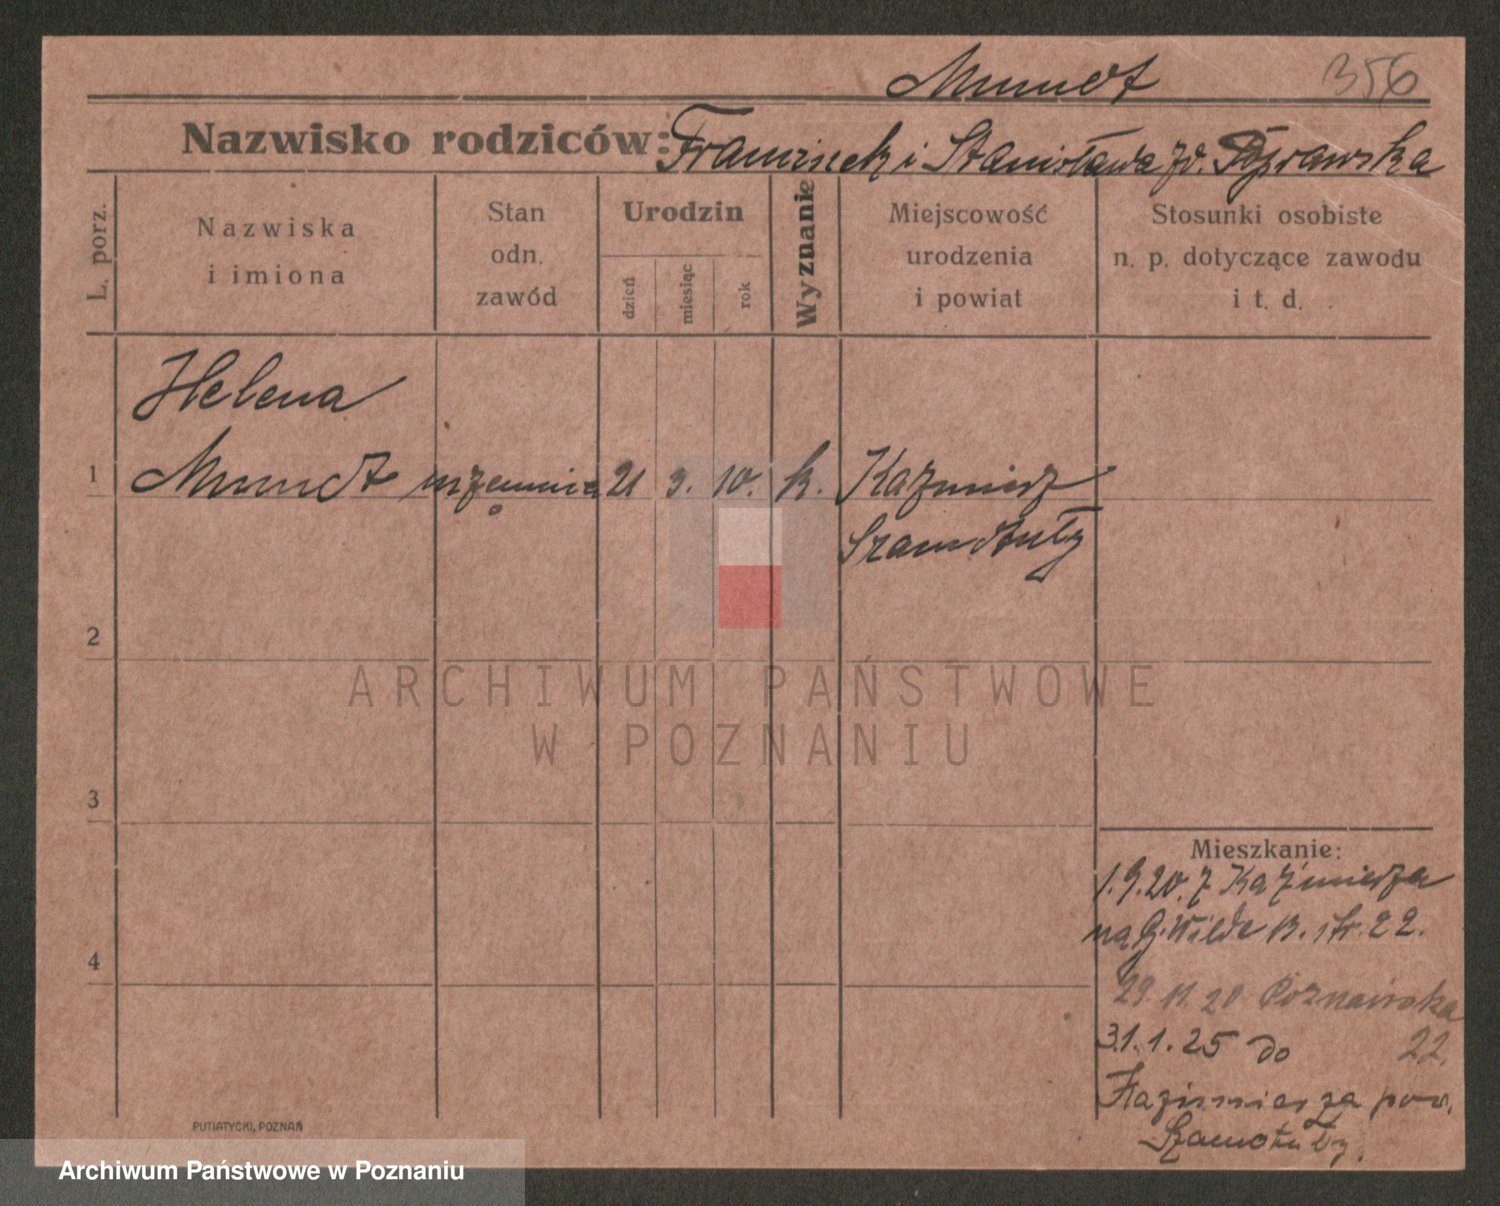 Mundt 356
Nazwisko rodziców: Franciszek i Stanisława zd.
L. porz.
Nazwiska
i imiona
Stan
odn.
zawód
Urodzin
dzień
miesiąc
rok
Wyznanie
Miejscowość
urodzenia
i powiat
Stosunki osobiste
n. p. dotyczące zawodu
i t. d.
Helena
1 Mundt uczennica 21 3. 10. k. Kaźmierz
Szamotuły
2
ARCHIWUM PAŃSTWOWE
W POZNANIU
3
4
Mieszkanie:
1.9.20. z Kaźmierza
na G. Wilde 13. str. 22.
29 11 20 Poznańska
22.
31.1.25 do
Kazimierza pow.
Szamotuły.
PUTIATYCKI, POZNAŃ
Archiwum Państwowe w Poznaniu